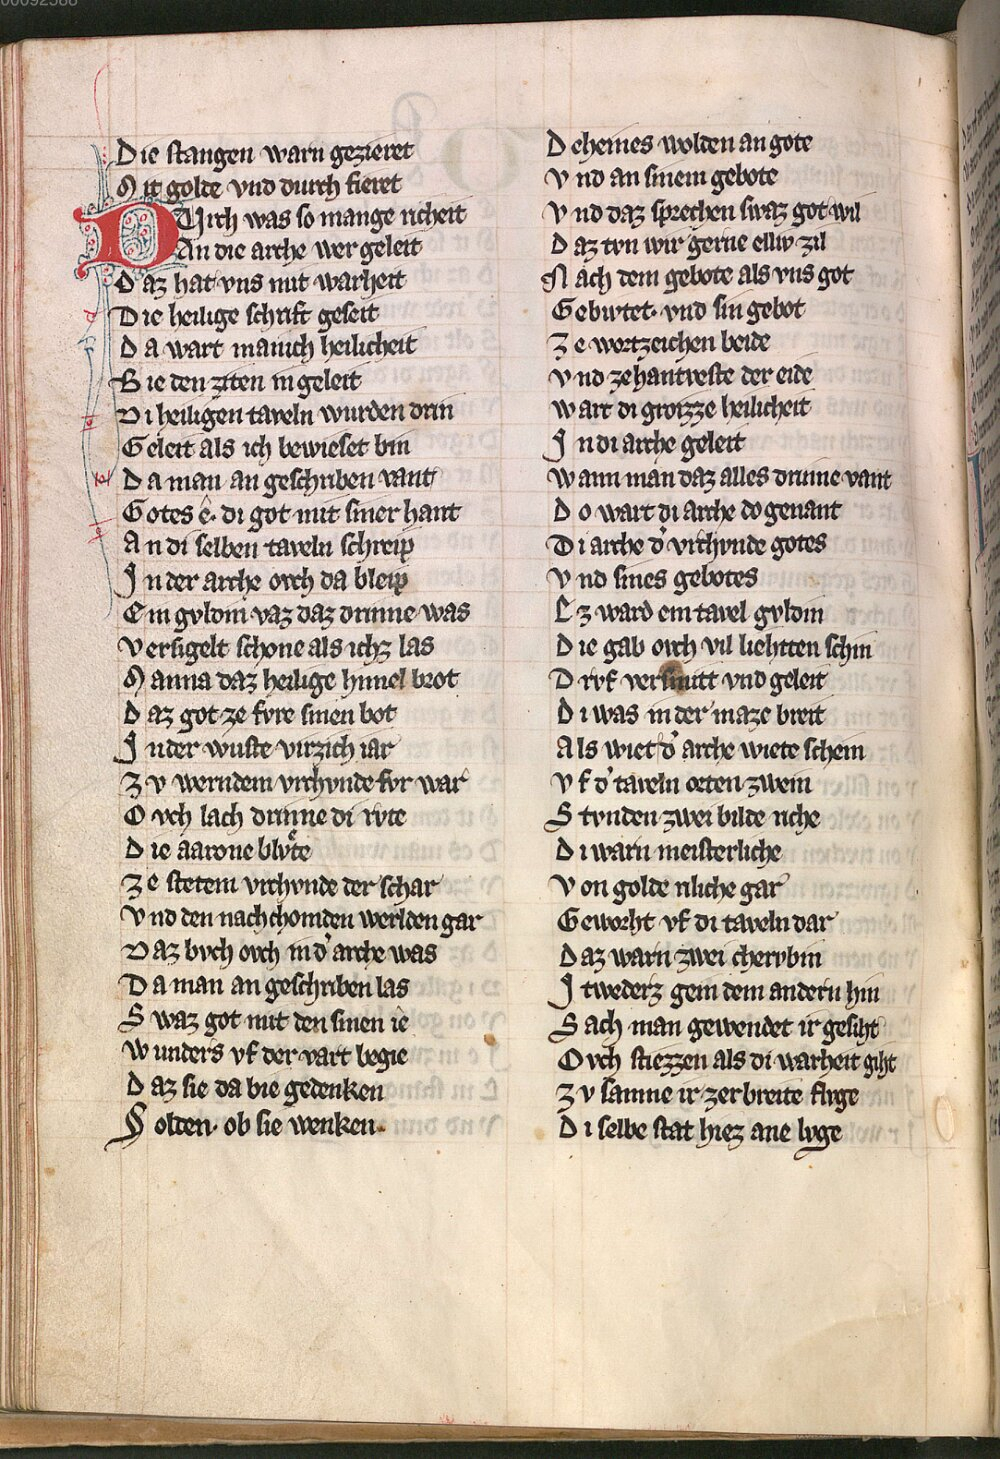 Die stangen warn gezieret
Mit golde vnd durch fieret
DVrch was so mange richeit
An die arche wer geleit
Daz hat vns mit warheit
Die heilige schrift geseit
Da wart manich heilicheit
Bie den ziten in geleit
Di heiligen taveln wurden drin
Geleit als ich bewieset bin
Da man an geschriben vant
Gotes ê. di got mit siner hant
An di selben taveln schreip
In der arche ovch da bleip
Ein gvldin vaz daz drinne was
Versigelt schone als ichz las
Manna daz heilige himel brot
Daz got ze fvre sinen bot
In der wuste virzich iar
Zv werndem vrchvnde fvr war
Ovch lach drinne di rvte
Die aarone blvͤte
Ze stetem vrchvnde der schar
Vnd den nach chomden werlden gar
Daz bvch ovch in d' arche was
Da man an geschriben las
Swaz got mit den sinen ie
Wunders vf der vart begie
Daz sie da bie gedenken
Solten. ob sie wenken.
Deheines wolden an gote
Vnd an sinem gebote
Vnd daz sprechen swaz got wil
Daz tvn wir gerne elliv zil
Nach dem gebote als vns got
Gebivtet. vnd sin gebot
Ze wortzeichen beide
Vnd ze hantveste der eide
Wart di grozze heilicheit
In di arche geleit
Wann man daz alles drinne vant
Do wart di arche do genant
Di arche d' vrchvnde gotes
Vnd sines gebotes
Ez ward ein tavel gvldin
Die gab ovch vil liehtten schin
Drvf versmitt vnd geleit
Di was in der maze breit
Als wiet d' arche wiete schein
Vf d' taveln orten zwein
Stvnden zwei bilde riche
Di warn meisterliche
Von golde riliche gar
Geworht vf di taveln dar
Daz warn zwei chervbin
Itwederz gein dem andern hin
Sach man gewendet ir gesiht
Ovch stiezzen als di warheit giht
Zv samne ir zerbreite flvge
Di selbe stat hiez ane lvge